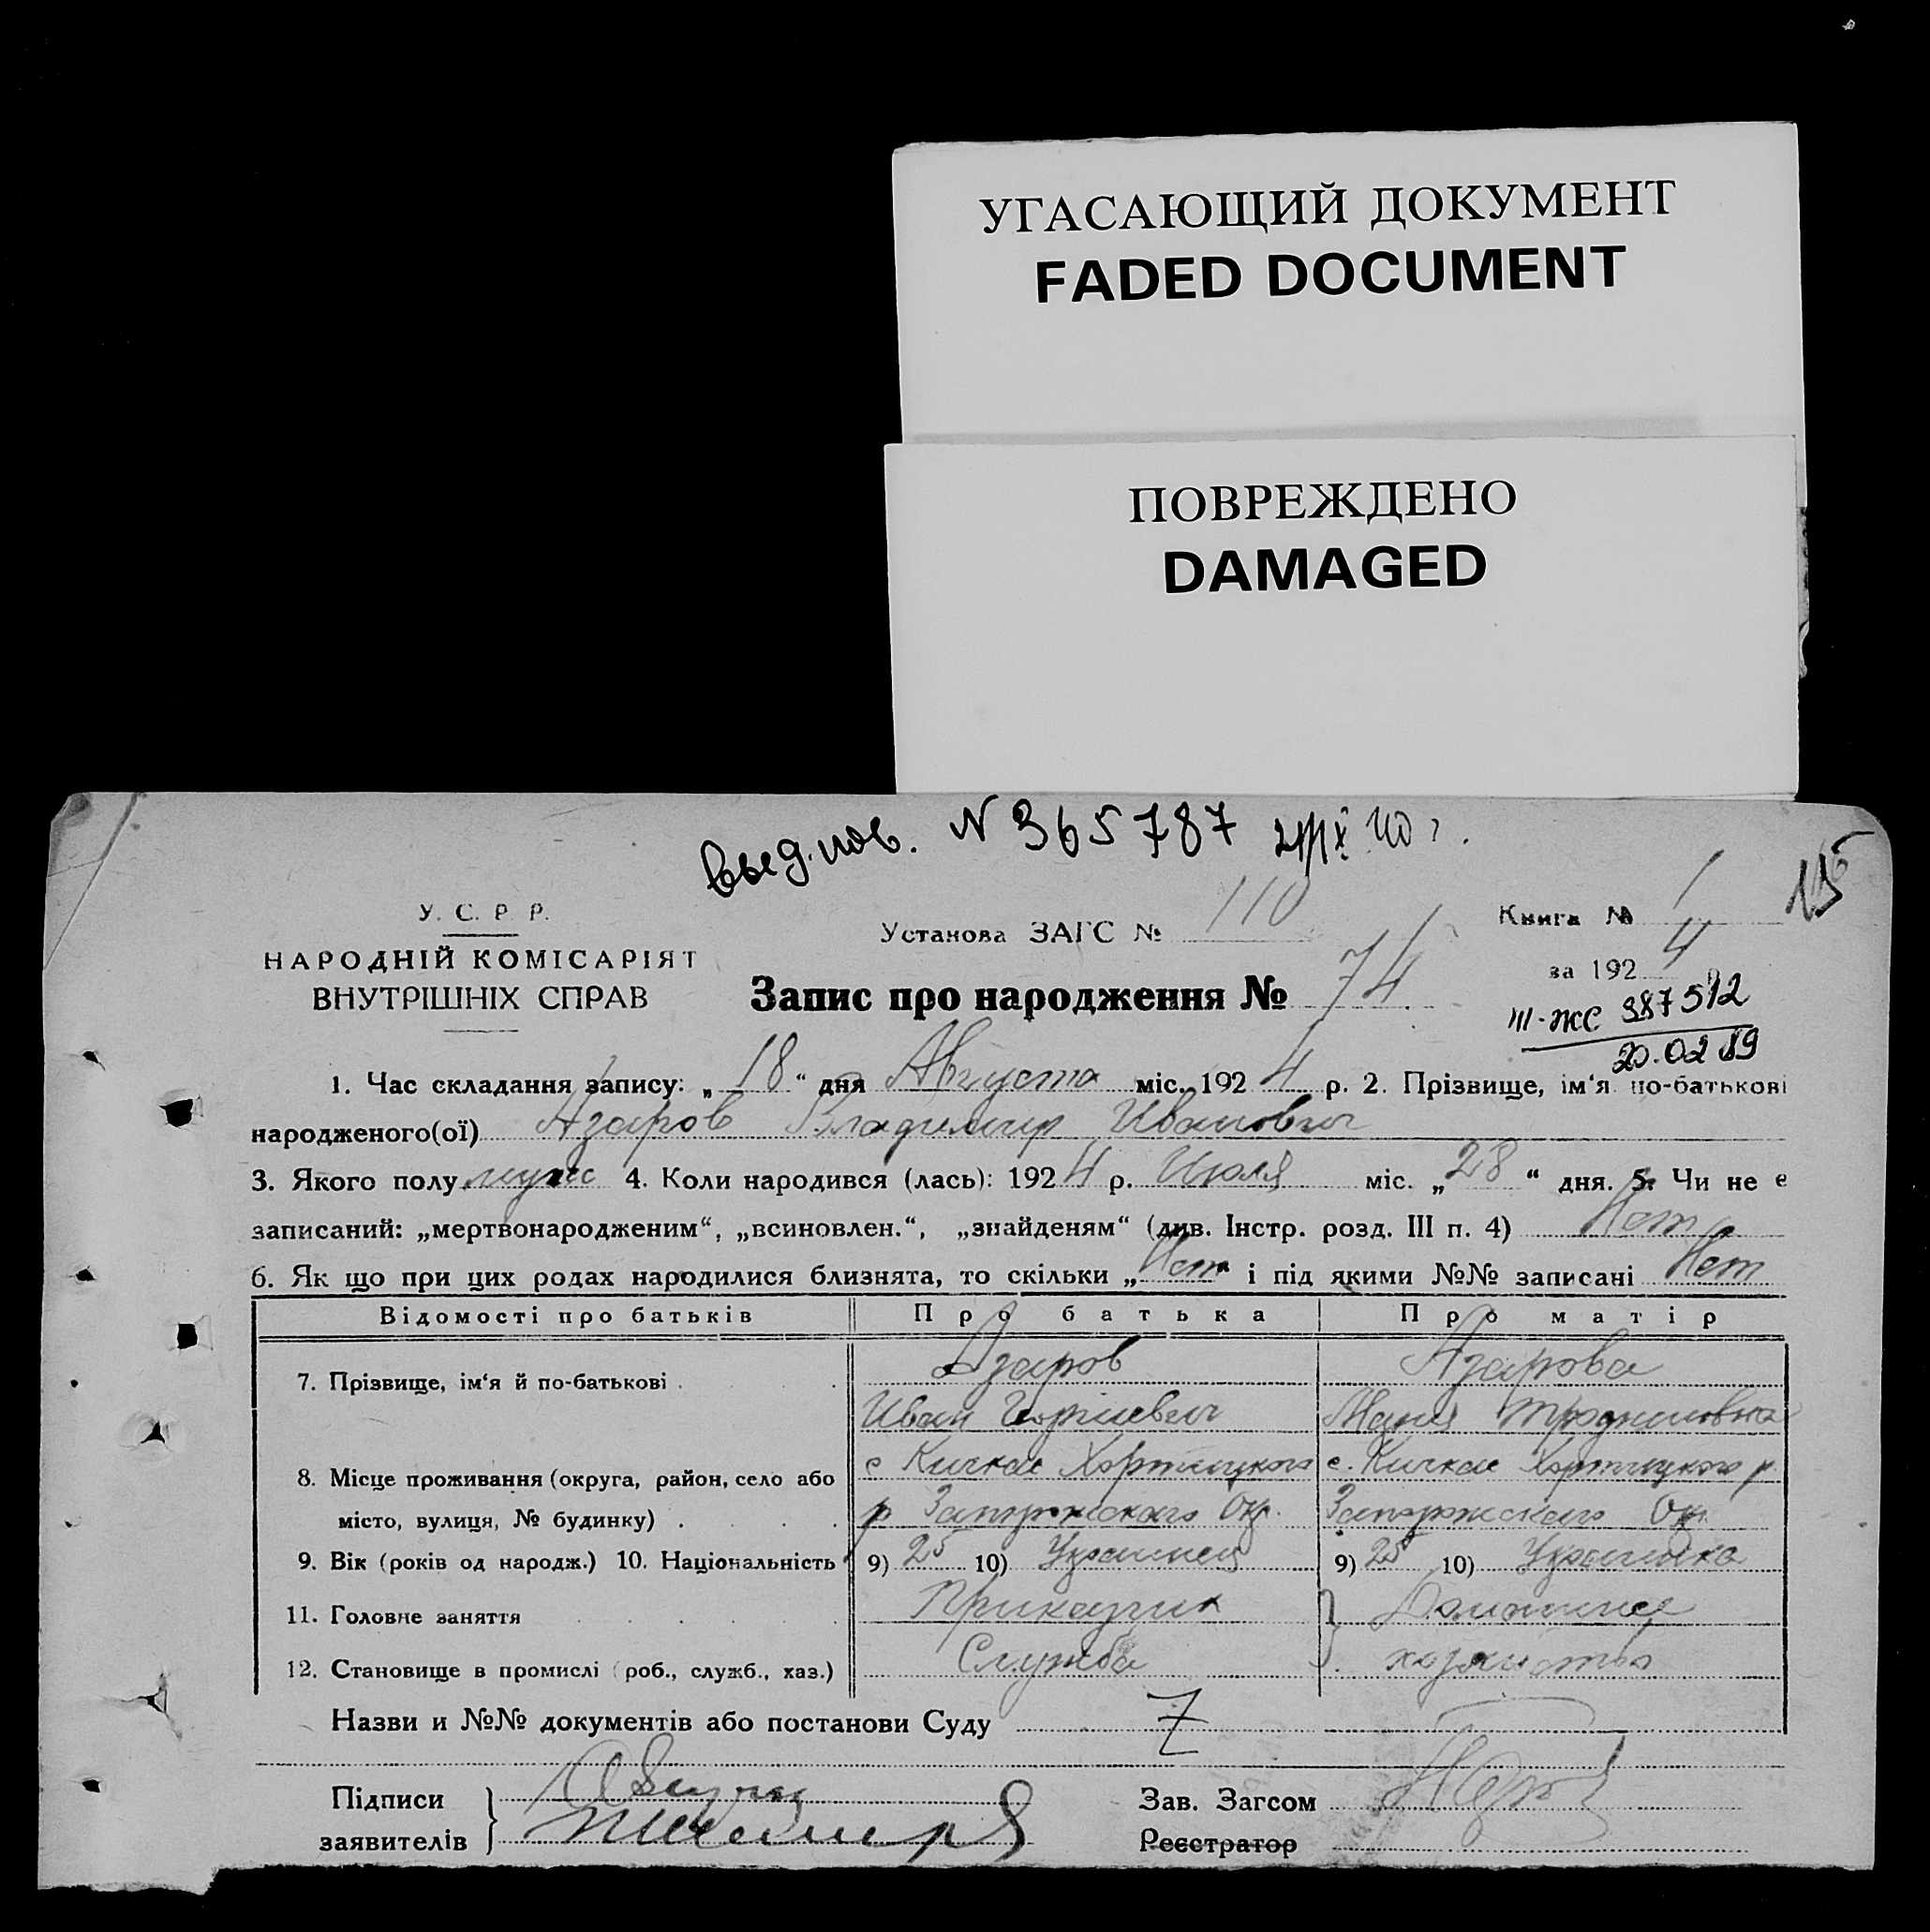 УГАСАЮЩИЙ ДОКУМЕНТ
FADED DOCUMENT
ПОВРЕЖДЕНО
DAMAGED
N 365787
15
У. С. Р. Р.
НАРОДНІЙ КОМІСАРІЯТ
ВНУТРІШНІХ СПРАВ
Установа ЗАГС № 110
Книга № 1
за 1924
Запис про народження № 74
III-ЖС 387512
20.02 89
1. Час складання запису: „18“ дня Августа міс. 1924 р. 2. Прізвище, ім‘я по-батькові
народженого(ої) Азаров Владимир Иванович
3. Якого полу муж 4. Коли народився (лась): 1924 р. Июля міс. „28“ дня. 5. Чи не е
записаний: „мертвонародженим“, „всиновлен.“, „знайденям“ (див. Інстр. розд. III п. 4) Нет
6. Як що при цих родах народилися близнята, то скільки „Нет“ і під якими №№ записані Нет
Відомості про батьків Про батька Про матір
7. Прізвище, ім‘я й по-батькові Азаров Азарова
Иван Мария
8. Місце проживання (округа, район, село або с Кичкас Хортицкого с. Кичкас Хортицкого р
місто, вулиця, № будинку) р Запорожского Окр. Запорожского Окр.
9. Вік (років од народж.) 10. Національність 9) 25 10) Украинец 9) 25 10) Украинка
11. Головне заняття Приказчик Домашнее
12. Становище в промислі (роб., служб., хаз.) Служба хозяйство
Назви и №№ документів або постанови Суду Z
Підписи
заявителів
Зав. Загсом
Реєстратор